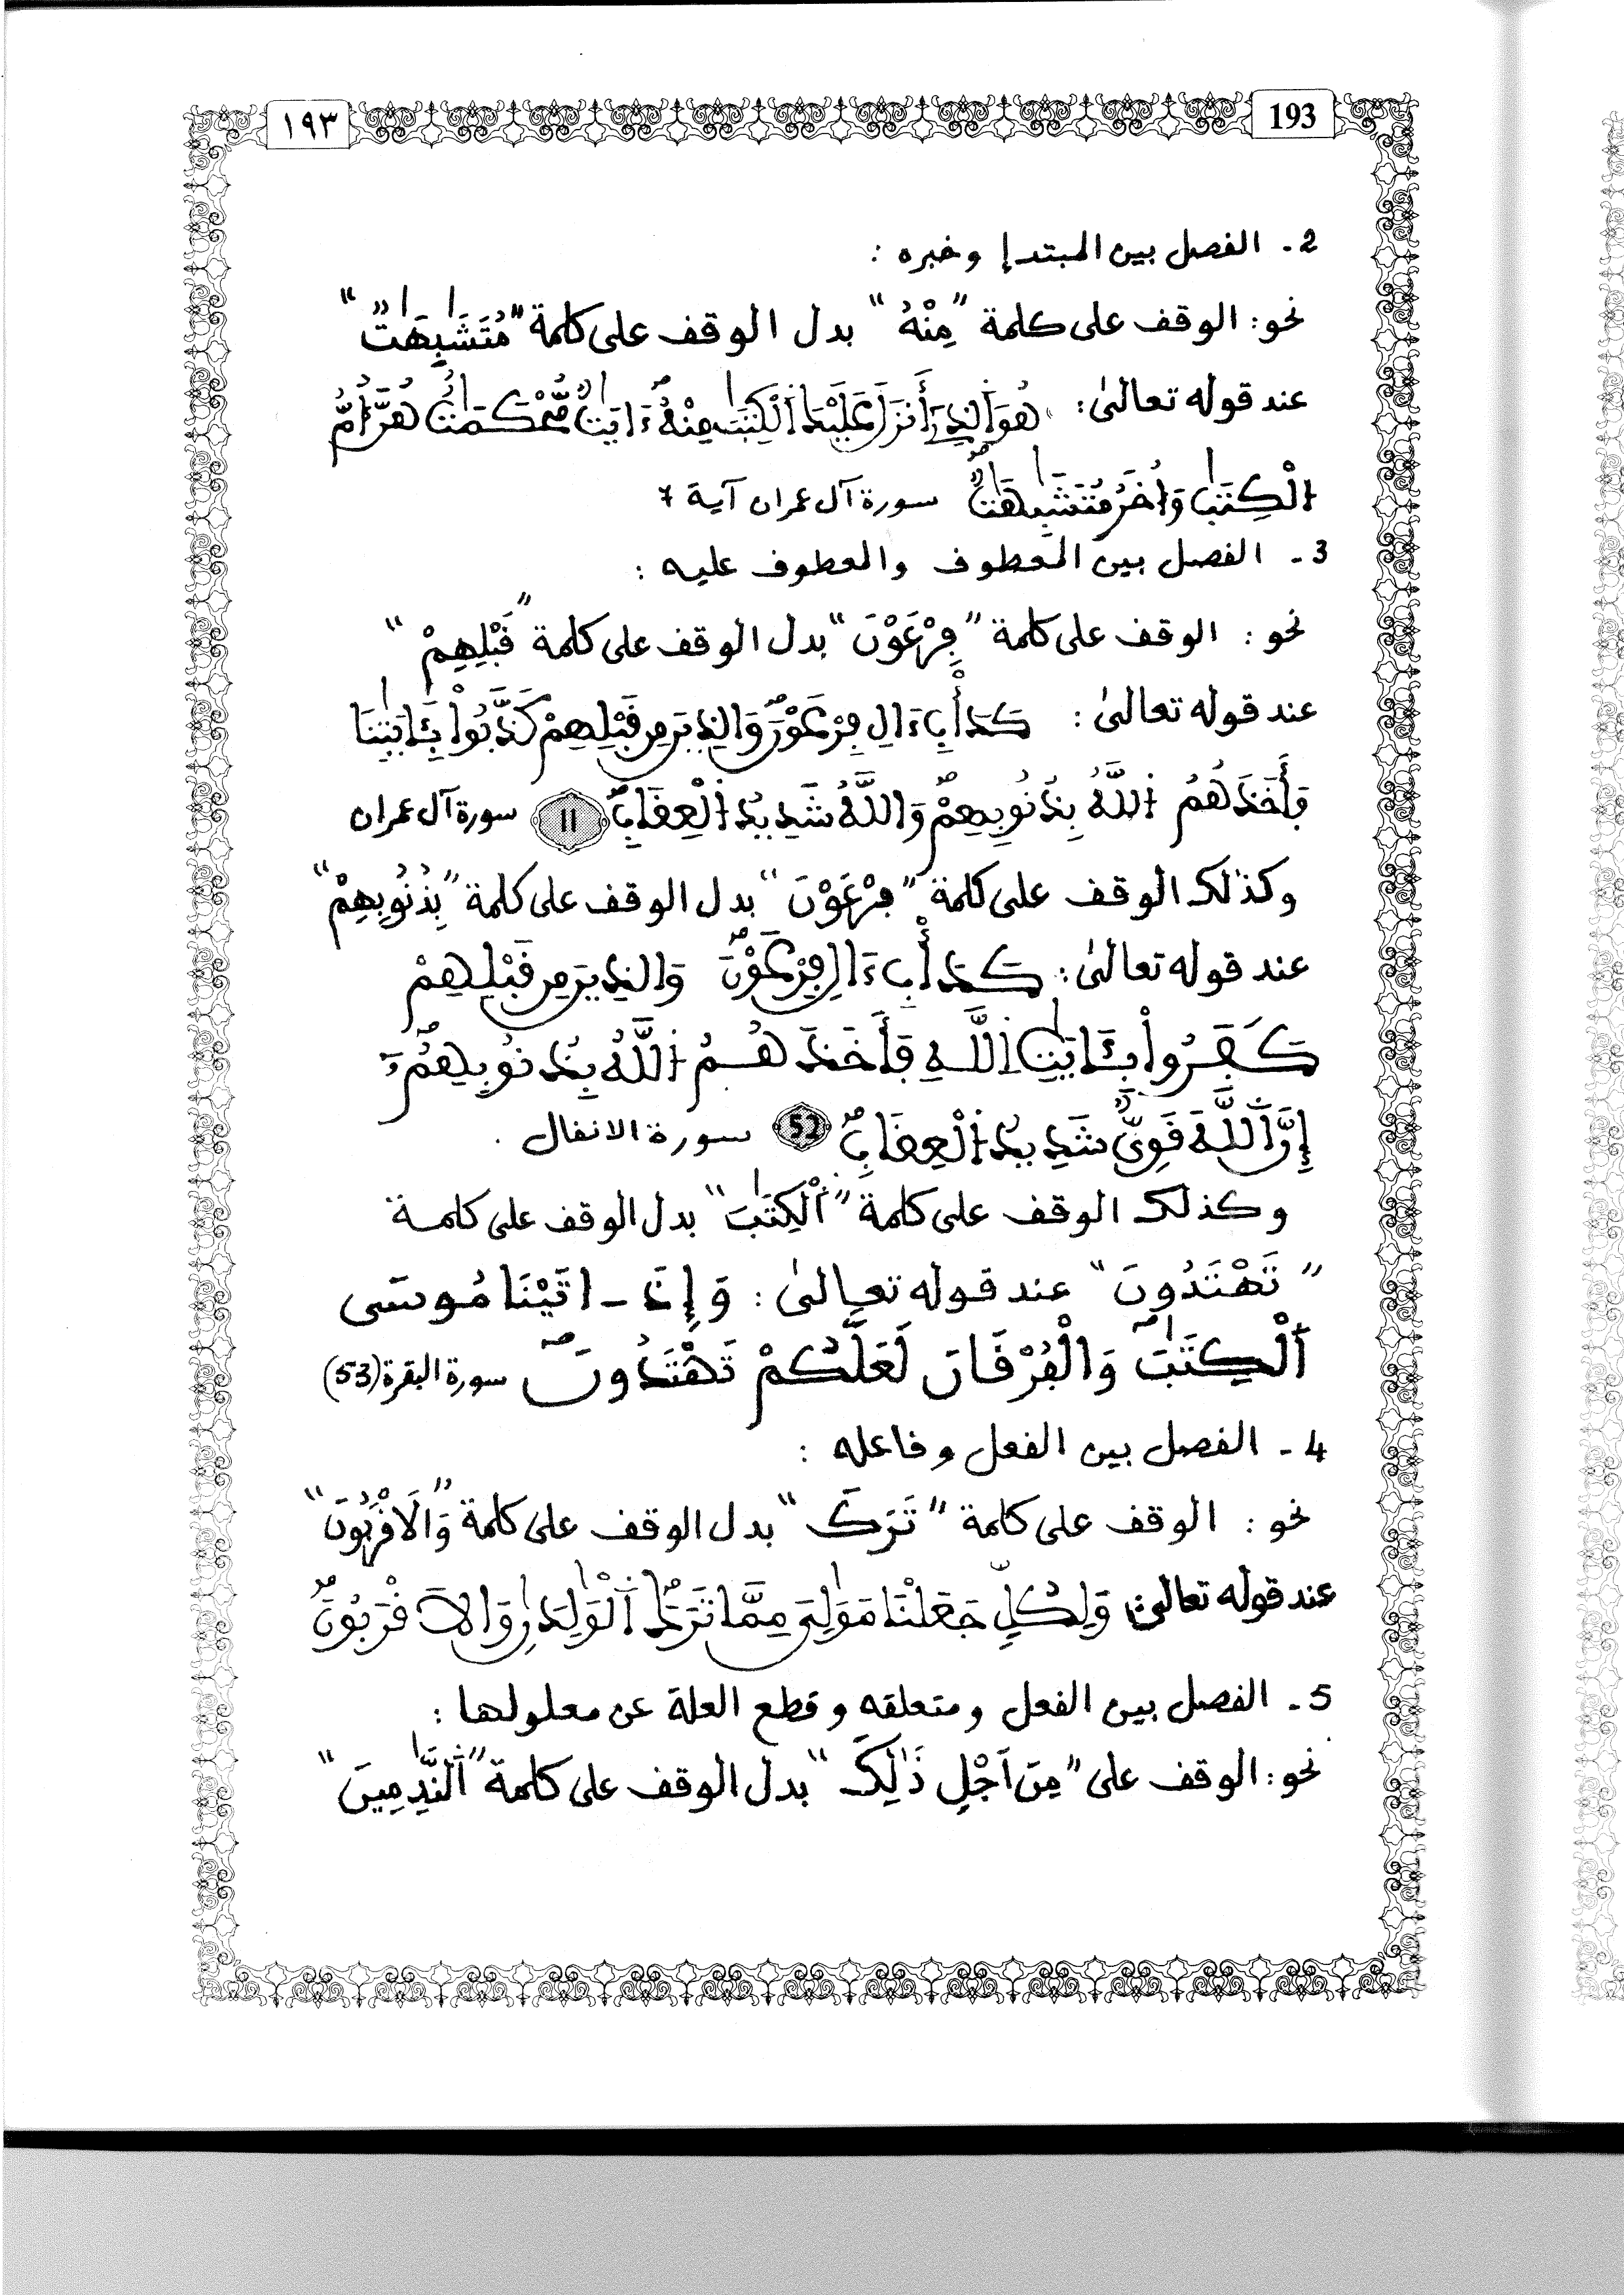 ١٩٣
193
2 - الفصل بين المبتدإ وخبره :
نحو: الوقف على كلمة "مِنْهُ" بدل الوقف على كلمة "مُتَشَٰبِهَٰتٌ"
عند قوله تعالىٰ: هُوَ ٱلذِےٓ أَنزَلَ عَلَيْكَ ٱلْكِتَٰبَ مِنْهُۖ ءَايَٰتٌ مُّحْكَمَٰتٌ هُنَّ أُمُّ
اُ۬لْكِتَٰبِ وَأُخَرُ مُتَشَٰبِهَٰتٌۖ سورة آل عمران آية 7
3 - الفصل بين المعطوف والمعطوف عليه :
نحو : الوقف على كلمة "فِرْعَوْنَ" بدل الوقف على كلمة "قَبْلِهِمْ"
عند قوله تعالىٰ : كَدَأْبِ ءَالِ فِرْعَوْنَۖ وَالذِينَ مِن قَبْلِهِمْ كَذَّبُواْ بِـَٔايَٰتِنَا
فَأَخَذَهُمُ اُ۬للَّهُ بِذُنُوبِهِمْۖ وَاللَّهُ شَدِيدُ اُ۬لْعِقَابِۖ 11 سورة آل عمران
وكذلك الوقف على كلمة "فِرْعَوْنَ" بدل الوقف على كلمة "بِذُنُوبِهِمْ"
عند قوله تعالىٰ: كَدَأْبِ ءَالِ فِرْعَوْنَۖ وَالذِينَ مِن قَبْلِهِمْ
كَفَرُواْ بِـَٔايَٰتِ اِ۬للَّهِ فَأَخَذَهُمُ اُ۬للَّهُ بِذُنُوبِهِمُۥٓۖ
إِنَّ اَ۬للَّهَ قَوِيٌّ شَدِيدُ اُ۬لْعِقَابِۖ 52 سورة الانفال .
وكذلك الوقف على كلمة "اَ۬لْكِتَٰبَ" بدل الوقف على كلمة
"تَهْتَدُونَ" عند قوله تعالىٰ : وَإِذَ - اتَيْنَا مُوسَى
اَ۬لْكِتَٰبَۖ وَالْفُرْقَانَ لَعَلَّكُمْ تَهْتَدُونَۖ سورة البقرة (53)
4 - الفصل بين الفعل وفاعله :
نحو : الوقف على كلمة "تَرَكَ" بدل الوقف على كلمة "وَالَاقْرَبُونَ"
عند قوله تعالىٰ: وَلِكُلٍّ جَعَلْنَا مَوَٰلِيَ مِمَّا تَرَكَۖ اَ۬لْوَٰلِدَٰنِ وَالَاقْرَبُونَۖ
5 - الفصل بين الفعل ومتعلقه وقطع العلة عن معلولها :
نحو : الوقف على "مِنَ اَجْلِ ذَٰلِكَ" بدل الوقف على كلمة "اَ۬لنَّٰدِمِينَ"